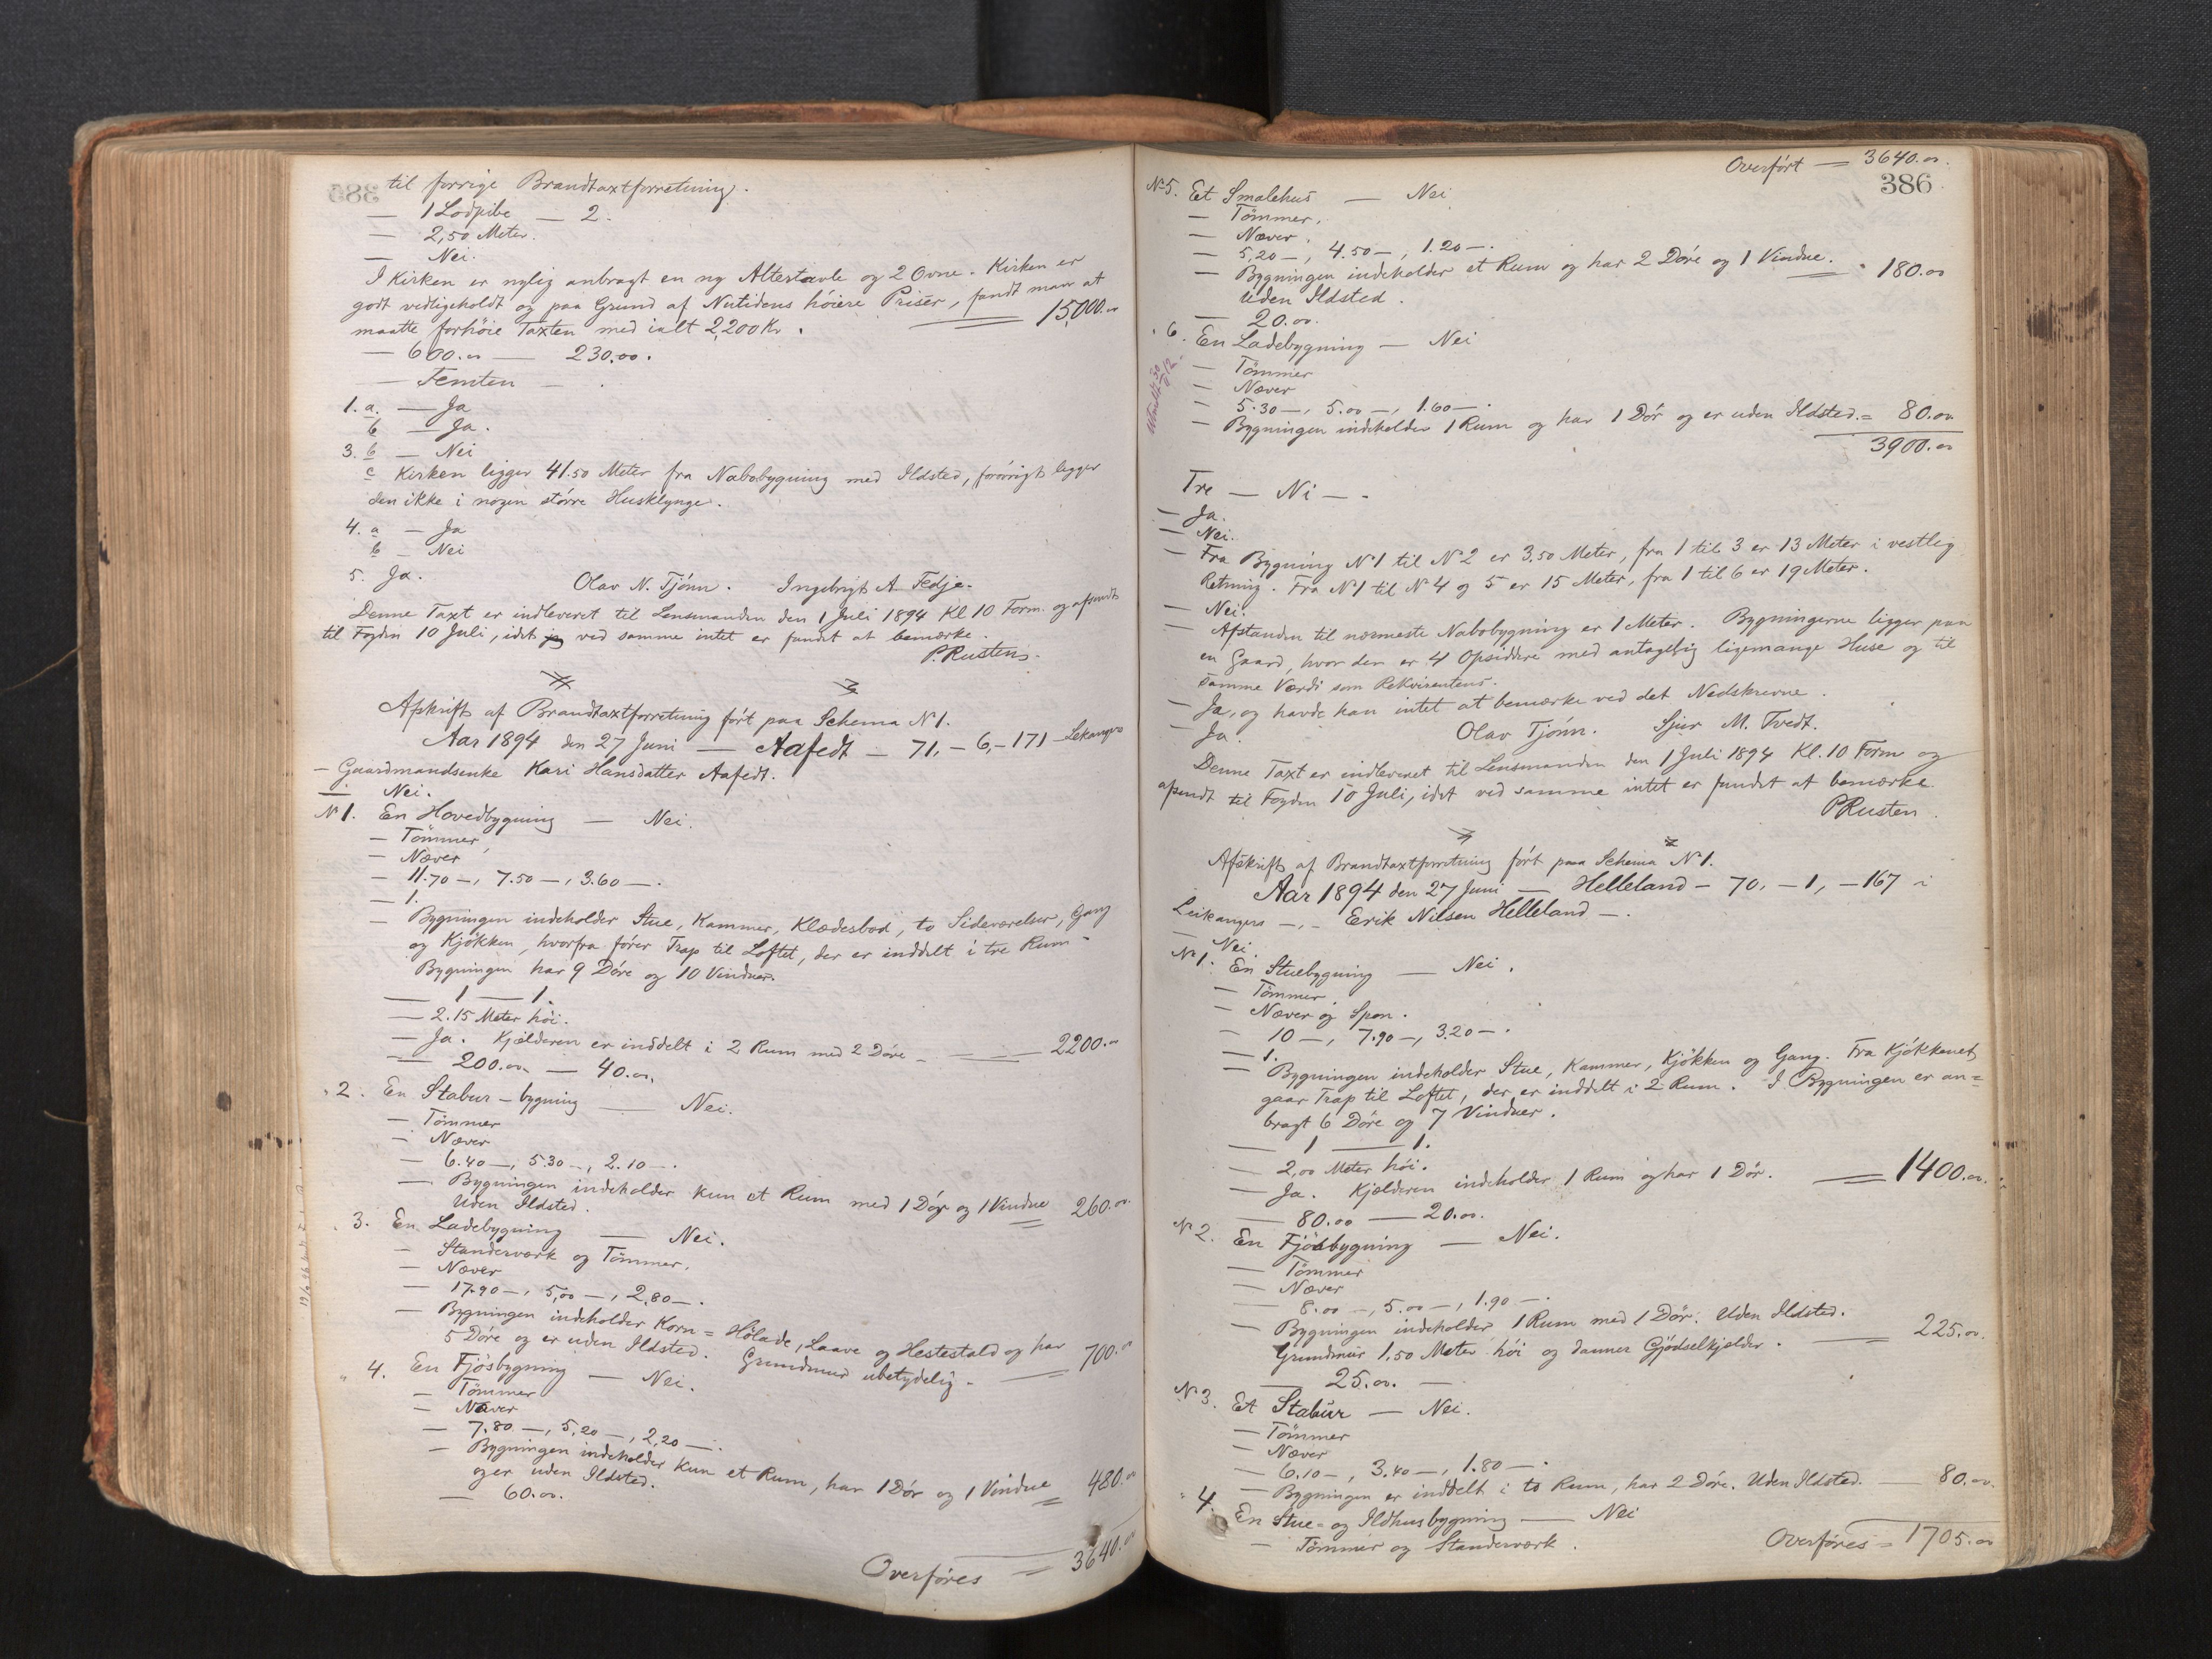 til forrige Brandtaxtforretning.
— 1 Lodpibe — 2.
— 2,50 Meter.
— Nei.
I Kirken er nylig anbragt en ny Altertavle og 2 Ovne. Kirken er
godt vedligeholdt og paa Grund af Nutidens höiere Priser, fandt man at
maatte forhöie Taxten med ialt 2,200 Kr. = 15,000.00
— 600.00 — 230.00.
— Femten —.
1. a. — Ja
b — Ja.
3. b — Nei
c Kirken ligger 41.50 Meter fra Nabobygning med Ildsted, forövrigt ligger
den ikke i nogen större Husklynge.
4. a — Ja
b — Nei
5. Ja.
Olav N. Tjönn. Ingebrigt A. Fedje.
Denne Taxt er indleveret til Lensmanden den 1 Juli 1894 Kl 10 Form. og afsendt
til Fogden 10 Juli, idet ved samme intet er fundet at bemærke.
P. Rusten.
Afskrift af Brandtaxtforretning fört paa Schema N 1.
Aar 1894 den 27 Juni — Aafedt — 71, — 6, — 171 — Lekangers
— Gaardmandsenke Kari Hansdatter Aafedt.
— Nei.
N 1. En Hovedbygning — Nei.
— Tömmer
— Næver
— 11.70 —, 7.50 —, 3.60 —.
— 1.
— Bygningen indeholder Stue, Kammer, Klædesbod, to Sideværelser, Gang
og Kjökken, hvorfra förer Trap til Loftet, der er inddelt i tre Rum.
Bygningen har 9 Döre og 10 Vinduer.
— 1 — 1.
— 2.15 Meter höi.
— Ja. Kjælderen er inddelt i 2 Rum med 2 Döre — 2200.00
— 200.00 — 40.00.
" 2. En Stabur-bygning — Nei.
— Tömmer
— Næver
— 6.40 —, 5.30 —, 2.10 —.
— Bygningen indeholder kun et Rum med 1 Dör og 1 Vindue
Uden Ildsted. = 260.00
" 3. En Ladebygning — Nei.
— Standerværk og Tömmer.
— Næver
— 17.90 —, 5,00 —, 2,80 —.
— Bygningen indeholder Korn = Hölade, Laave og Hestestald og har
5 Döre og er uden Ildsted. Grundmur ubetydelig. — 700.00
" 4. En Fjösbygning — Nei.
— Tömmer
— Næver
— 7.80 —, 5,20 —, 2,20 —.
— Bygningen indeholder kun et Rum, har 1 Dör og 1 Vindue
og er uden Ildsted. = 480.00
— 60.00.
Overföres = 3640.00
Overfört — 3640.00.
386
N 5. Et Smalehus — Nei
— Tömmer.
— Næver.
— 5,20 —, 4.50 —, 1.20 —.
— Bygningen indeholder et Rum og har 2 Döre og 1 Vindue. = 180.00
Uden Ildsted.
— 20.00.
" 6. En Ladebygning — Nei
— Tömmer
— Næver
— 5.30 —, 5.00 —, 1.60 —.
— Bygningen indeholder 1 Rum og har 1 Dör og er uden Ildsted. = 80.00
3900.00
Tre — Ni —.
— Ja.
— Nei.
— Fra Bygning N 1 til N 2 er 3.50 Meter, fra 1 til 3 er 13 Meter i vestlig
Retning. Fra N 1 til N 4 og 5 er 15 Meter, fra 1 til 6 er 19 Meter.
— Nei.
— Afstanden til nærmeste Nabobygning er 1 Meter. Bygningerne ligger paa
en Gaard, hvor der er 4 Opsiddere med antagelig ligemange Huse og til
samme Værdi som Rekvirentens.
— Ja, og havde han intet at bemærke ved det Nedskrevne.
— Ja. Olav Tjönn. Sjur M. Tvedt.
Denne Taxt er indleveret til Lensmanden den 1 Juli 1894 Kl. 10 Form og
afsendt til Fogden 10 Juli, idet ved samme intet er fundet at bemærke.
P Rusten.
Afskrift af Brandtaxtforretning fört paa Schema N 1.
Aar 1894 den 27 Juni — Helleland — 70, — 1, — 167 i
Leikangers —,— Erik Nilsen Helleland —.
— Nei
N 1. En Stuebygning — Nei.
— Tömmer.
— Næver og Spon.
— 10 —, 7.90 —, 3.20 —.
— 1.
— Bygningen indeholder Stue, Kammer, Kjökken og Gang. Fra Kjökkenet
gaar Trap til Loftet, der er inddelt i 2 Rum. I Bygningen er an=
bragt 6 Döre og 7 Vinduer.
— 1 — 1.
— 2,00 Meter höi.
— Ja. Kjælderen indeholder 1 Rum og har 1 Dör. = 1400.00.
— 80.00 — 20.00.
N 2. En Fjösbygning — Nei.
— Tömmer
— Næver
— 8.00 —, 5.00 —, 1.90 —.
— Bygningen indeholder 1 Rum med 1 Dör. Uden Ildsted.
Grundmur 1,50 Meter höi og danner Gjödselkjælder. = 225.00.
— 25.00. —
N 3. Et Stabur — Nei.
— Tömmer
— Næver
— 6.10 —, 3.40 —, 1.80 —.
— Bygningen er inddelt i to Rum, har 2 Döre. Uden Ildsted. 80.00.
" 4. En Stue- og Ildhusbygning — Nei
— Tömmer og Standerværk.
Overföres = 1705.00